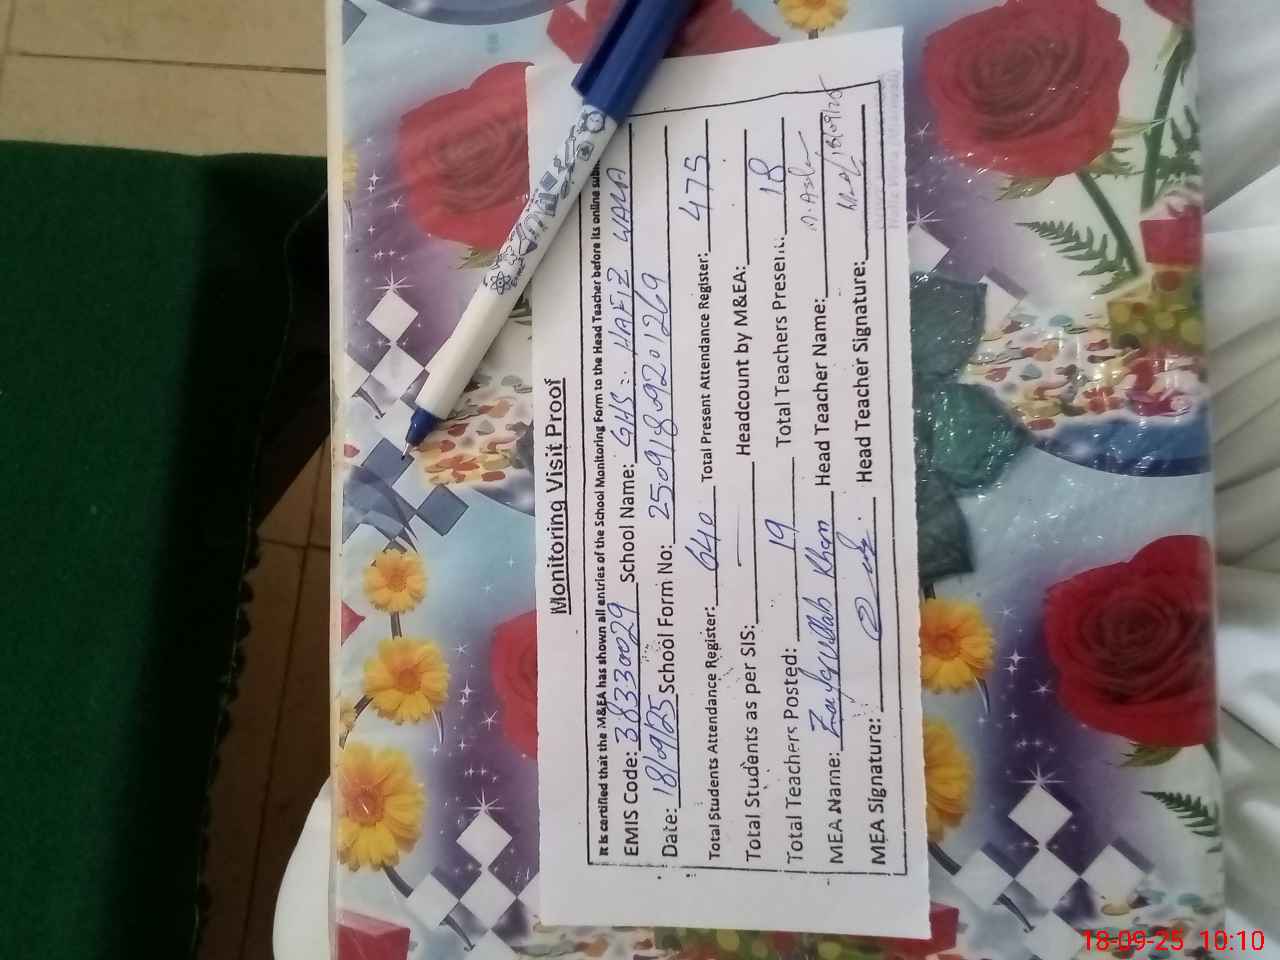 Monitoring Visit Proof
It is certified that the M&EA has shown all entries of the School Monitoring Form to the Head Teacher before its online
EMIS Code: 38330029 School Name: GHS: HAFIZ WALA
Date: 18/9/25 School Form No: 25091809201269
Total Students Attendance Register: 640 Total Present Attendance Register: 475
Total Students as per SIS: Headcount by M&EA:
Total Teachers Posted: 19 Total Teachers Present: 18
MEA Name: Khan Head Teacher Name:
MEA Signature: Head Teacher Signature: 18/09/25
18-09-25 10:10